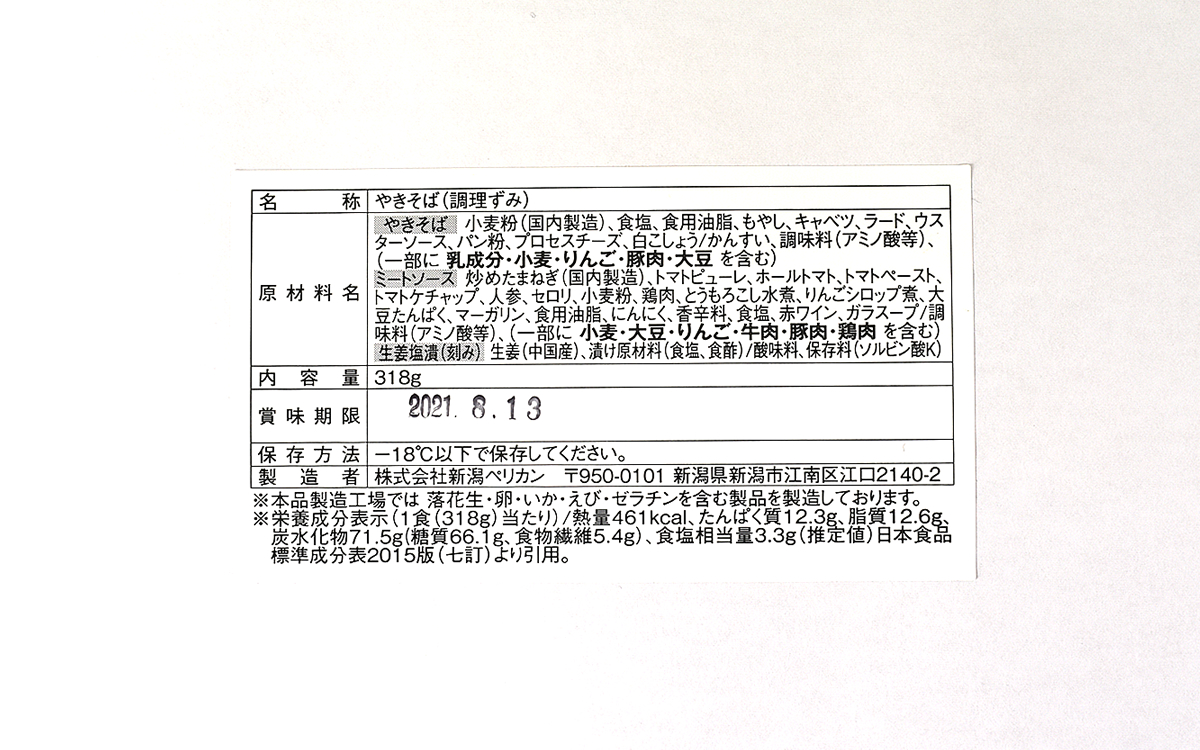 名称 やきそば(調理ずみ)
原材料名 やきそば 小麦粉(国内製造)、食塩、食用油脂、もやし、キャベツ、ラード、ウス
ターソース、パン粉、プロセスチーズ、白こしょう/かんすい、調味料(アミノ酸等)、
(一部に 乳成分・小麦・りんご・豚肉・大豆 を含む)
ミートソース 炒めたまねぎ(国内製造)、トマトピューレ、ホールトマト、トマトペースト、
トマトケチャップ、人参、セロリ、小麦粉、鶏肉、とうもろこし水煮、りんごシロップ煮、大
豆たんぱく、マーガリン、食用油脂、にんにく、香辛料、食塩、赤ワイン、ガラスープ/調
味料(アミノ酸等)、(一部に 小麦・大豆・りんご・牛肉・豚肉・鶏肉 を含む)
生姜塩漬(刻み) 生姜(中国産)、漬け原材料(食塩、食酢)/酸味料、保存料(ソルビン酸K)
内容量 318g
賞味期限 2021.8.13
保存方法 −18℃以下で保存してください。
製造者 株式会社新潟ペリカン 〒950-0101 新潟県新潟市江南区江口2140-2
※本品製造工場では 落花生・卵・いか・えび・ゼラチンを含む製品を製造しております。
※栄養成分表示(1食(318g)当たり)/熱量461kcal、たんぱく質12.3g、脂質12.6g、
炭水化物71.5g(糖質66.1g、食物繊維5.4g)、食塩相当量3.3g(推定値)日本食品
標準成分表2015版(七訂)より引用。